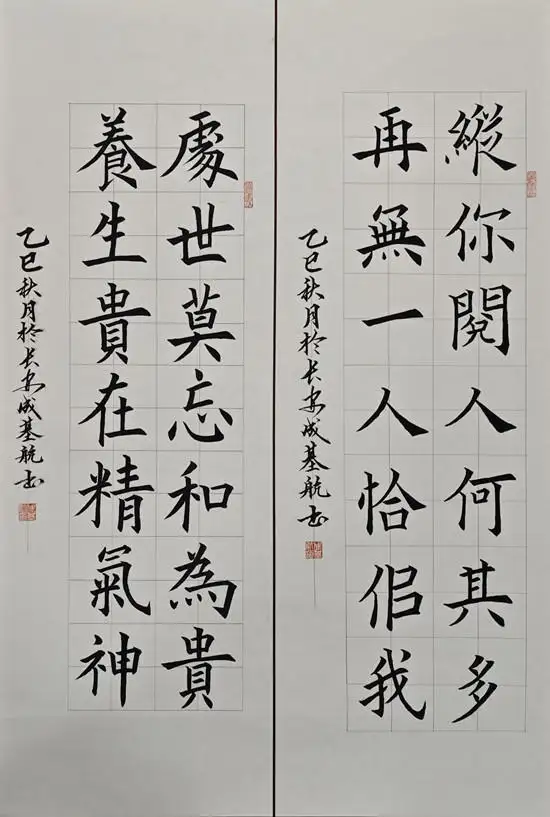 縱你閱人何其多
再無一人恰侣我
乙巳秋月於长安成基航书
處世莫忘和為貴
養生貴在精氣神
乙巳秋月於长安成基航书